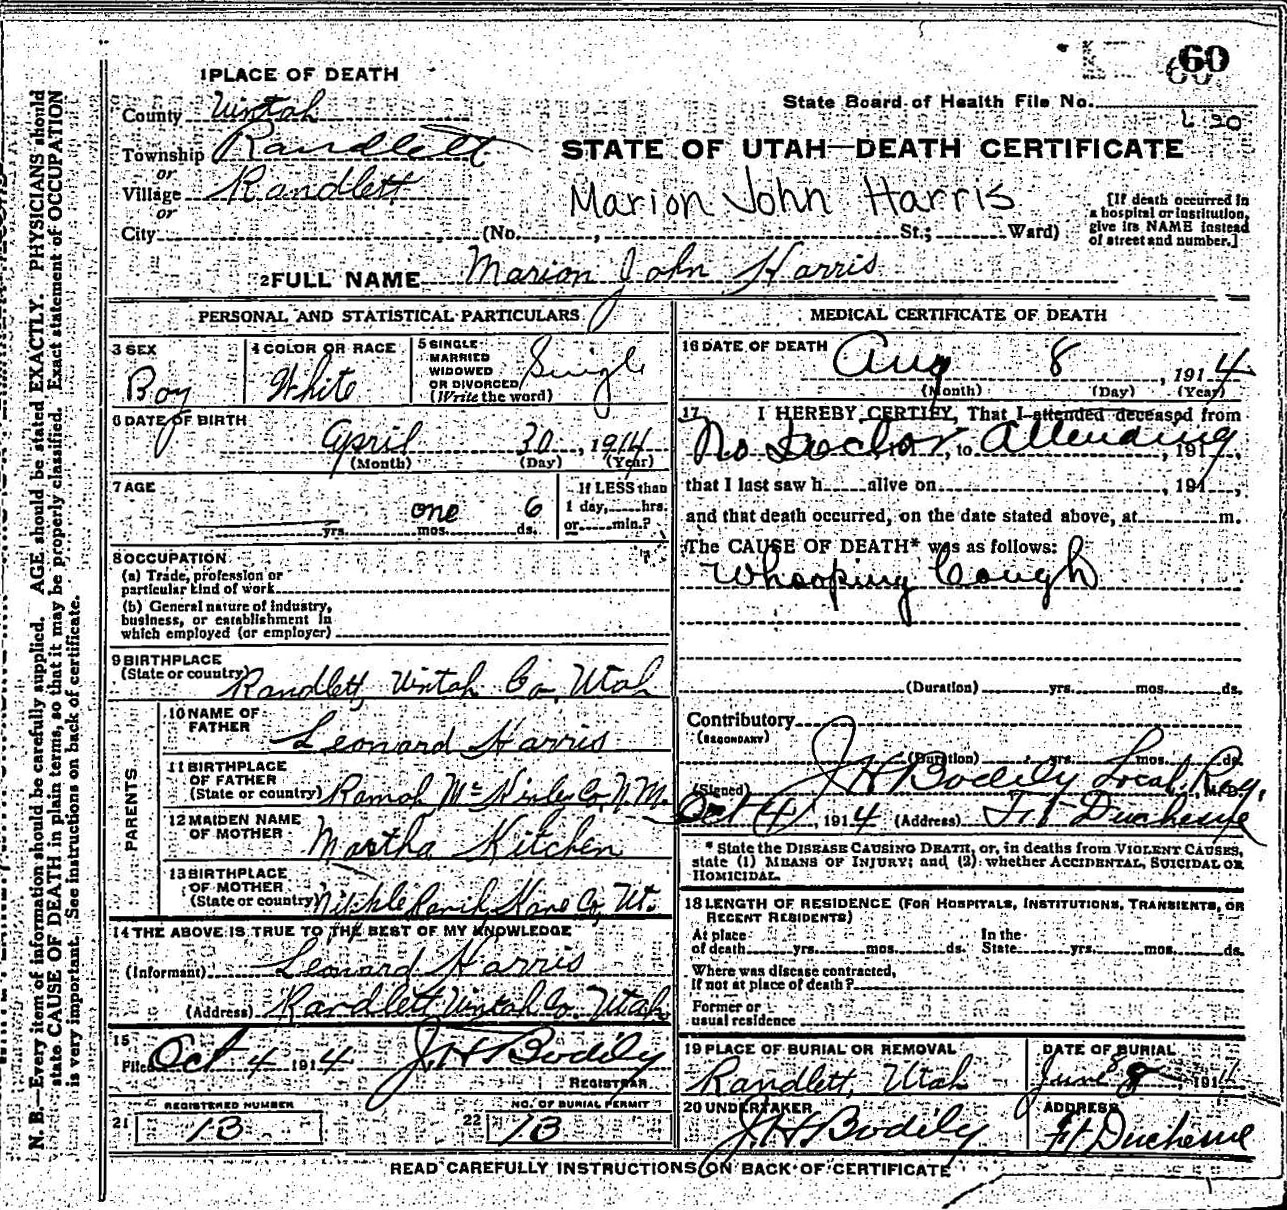 60
60
1 PLACE OF DEATH
State Board of Health File No.
County Uintah
620
Township Randlett
or
STATE OF UTAH—DEATH CERTIFICATE
Village Randlett
or
Marion John Harris
[If death occurred in
a hospital or institution,
give its NAME instead
of street and number.]
City , (No. , St.; Ward)
2 FULL NAME Marion John Harris
PERSONAL AND STATISTICAL PARTICULARS
3 SEX
Boy
4 COLOR OR RACE
White
5 SINGLE
MARRIED
WIDOWED
OR DIVORCED
(Write the word)
Single
6 DATE OF BIRTH
April 30, 1914
(Month) (Day) (Year)
7 AGE
yrs. one mos. 6 ds.
If LESS than
1 day, hrs.
or min.?
8 OCCUPATION
(a) Trade, profession or
particular kind of work
(b) General nature of industry,
business, or establishment in
which employed (or employer)
9 BIRTHPLACE
(State or country) Randlett, Uintah Co, Utah
PARENTS
10 NAME OF
FATHER Leonard Harris
11 BIRTHPLACE
OF FATHER
(State or country) Ramah McKinley Co N.M.
12 MAIDEN NAME
OF MOTHER Martha Kitchen
13 BIRTHPLACE
OF MOTHER
(State or country) Ranch Kane Co, Ut.
14 THE ABOVE IS TRUE TO THE BEST OF MY KNOWLEDGE
(Informant) Leonard Harris
(Address) Randlett Uintah Co. Utah
15
Filed Oct 4 1914 J H Bodily
REGISTRAR
REGISTERED NUMBER
21 13
NO. OF BURIAL PERMIT
22 13
MEDICAL CERTIFICATE OF DEATH
16 DATE OF DEATH
Aug 8, 1914
(Month) (Day) (Year)
17 I HEREBY CERTIFY, That I attended deceased from
No Doctor, to Attending, 191
that I last saw h alive on , 191 ,
and that death occurred, on the date stated above, at m.
The CAUSE OF DEATH* was as follows:
Whooping Cough
(Duration) yrs. mos. ds.
Contributory
(SECONDARY)
(Duration) yrs. mos. ds.
(Signed) J H Bodily Local Reg, M.D.
Oct 4, 1914 (Address) Ft Duchesne
* State the DISEASE CAUSING DEATH, or, in deaths from VIOLENT CAUSES,
state (1) MEANS OF INJURY; and (2) whether ACCIDENTAL, SUICIDAL OR
HOMICIDAL.
18 LENGTH OF RESIDENCE (FOR HOSPITALS, INSTITUTIONS, TRANSIENTS, OR
RECENT RESIDENTS)
At place
of death yrs. mos. ds. In the
State yrs. mos. ds.
Where was disease contracted,
If not at place of death?
Former or
usual residence
19 PLACE OF BURIAL OR REMOVAL
Randlett, Utah
DATE OF BURIAL
June 8, 1914
20 UNDERTAKER
J H Bodily
ADDRESS
Ft Duchesne
READ CAREFULLY INSTRUCTIONS ON BACK OF CERTIFICATE
N. B.—Every item of information should be carefully supplied. AGE should be stated EXACTLY. PHYSICIANS should
state CAUSE OF DEATH in plain terms, so that it may be properly classified. Exact statement of OCCUPATION
is very important. See instructions on back of certificate.